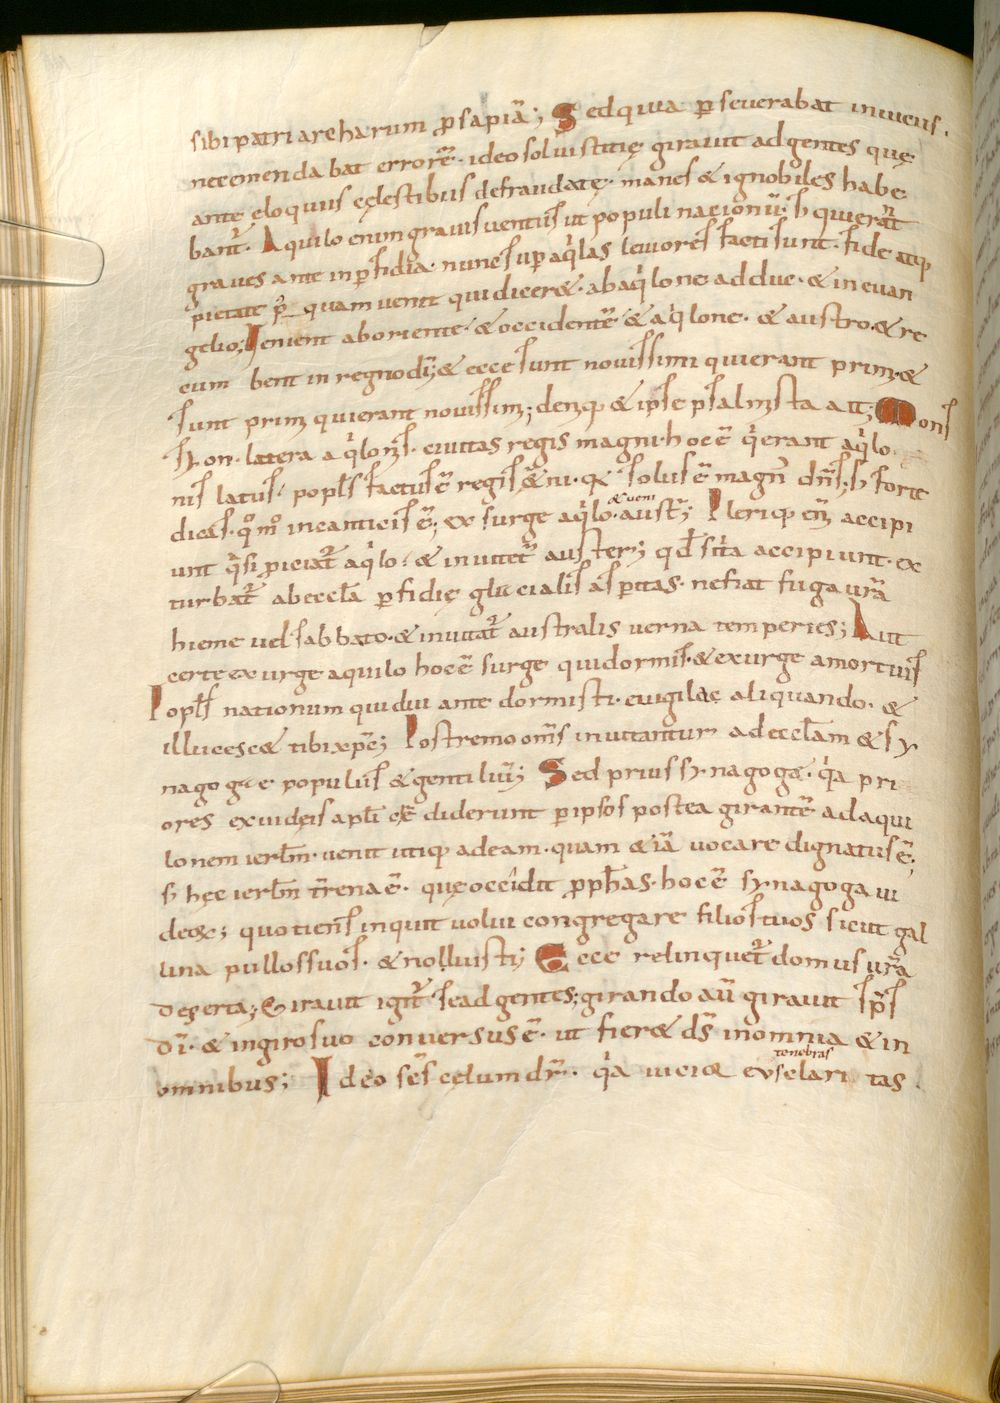 sibi patriarcharum ꝓsapiā; Sed quia ꝑseuerabat iniueus.
nec emendabat errorē. ideo sol iustitię girauit ad gentes quę
ante eloquiis cęlestibus defraudatę. manes & ignobiles habe
bant᷑. Aquilo enim grauis uentus ut populi nacionū; ħ qui erant
graues ante in ꝑfidia. nunc suꝑ aqͥlas leuiores facti sunt. fide atq;
pietate pꝰ quam uenit qui dicer&. ab aqͥlone adduc. & in euan
gelio; Uenient ab oriente. & occidentē & aqͥlone. & austro. & re
cum bent in regno dī; & ecce sunt nouissimi qui erant primi. &
sunt primi qui erant nouissimi; deniq; & ipse psalmista ait; Mons
syon. latera aqͥlonis. ciuitas regis magni. hoc ē qͥ erant aqͥlo
nis latus. popl̄s factus ē regis &ni. q solus ē magn᷒ dn̄s; ħ forte
dicas. qͦmͦ in canticis ē; exsurge aqͥlo. & ueni aust᷑; Pleriq; enī accipi
unt qͣsi ꝓiciat᷑ aqͥlo. & inuitet᷑ auster; qd̄ si ita accipiunt. ex
turbat᷑ ab eccl̄a ꝑfidię glucialis asꝑitas. ne fiat fuga ur̄a
hieme uel sabbato. & inuitat᷑ australis uerna temperies; Aut
certe exurge aquilo hoc ē surge qui dormis. & exurge a mortuis
Popl̄s nationum qui diu ante dormisti. euigilac aliquando. &
illucesc& tibi xp̄c; Postremo om̄s inuitantur ad eccl̄am & sy
nagogae populus & gentiliū; Sed prius synagogę. qͥa pri
ores ex iudęis apl̄i crēdiderunt ꝑ ipsos postea girantē ad aqui
lonem ierl̄m. uenit utiq; ad eam. quam & iā uocare dignatus ē;
ħ hęc ierl̄m t̄rena ē. quę occidit ꝓph̄as. hoc ē synagoga iu
deoꝝ; quotiens inquit uolui congregare filios tuos sicut gal
lina pullos suos. & noluisti; Ecce relinquet᷑ domus ur̄a
deserta; Girauit igit᷑ se ad gentes; girando aū girauit sp̄s
dī. & in giro suo conuersus ē. ut fier& ds̄ in omnia & in
omnibus; Ideo sc̄s cęlum dr̄. qͥa uicia exselari tenebras tas